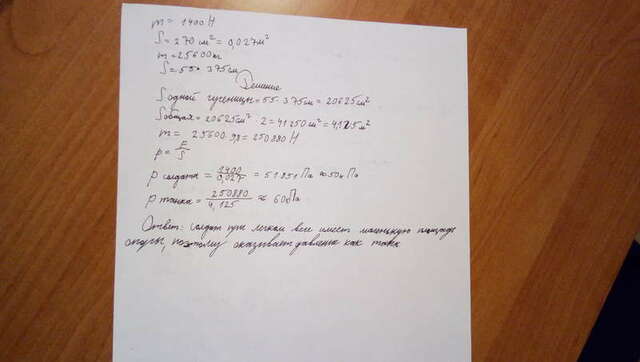 m = 1400 Н
S = 270 см² = 0,027 м²
m = 25600 кг
S = 55 · 375 см
Решение
S одной гусеницы = 55 · 375 см = 20625 см²
S общая = 20625 см² · 2 = 41250 см² = 4,125 м²
m = 25600 · 9,8 = 250880 Н
p = F/S
p солдата = 1400/0,027 = 51851 Па ≈ 50 к Па
p танка = 250880/4,125 ≈ 60 Па
Ответ: солдат при легком весе имеет маленькую площадь
опоры, поэтому оказывает давление как танк